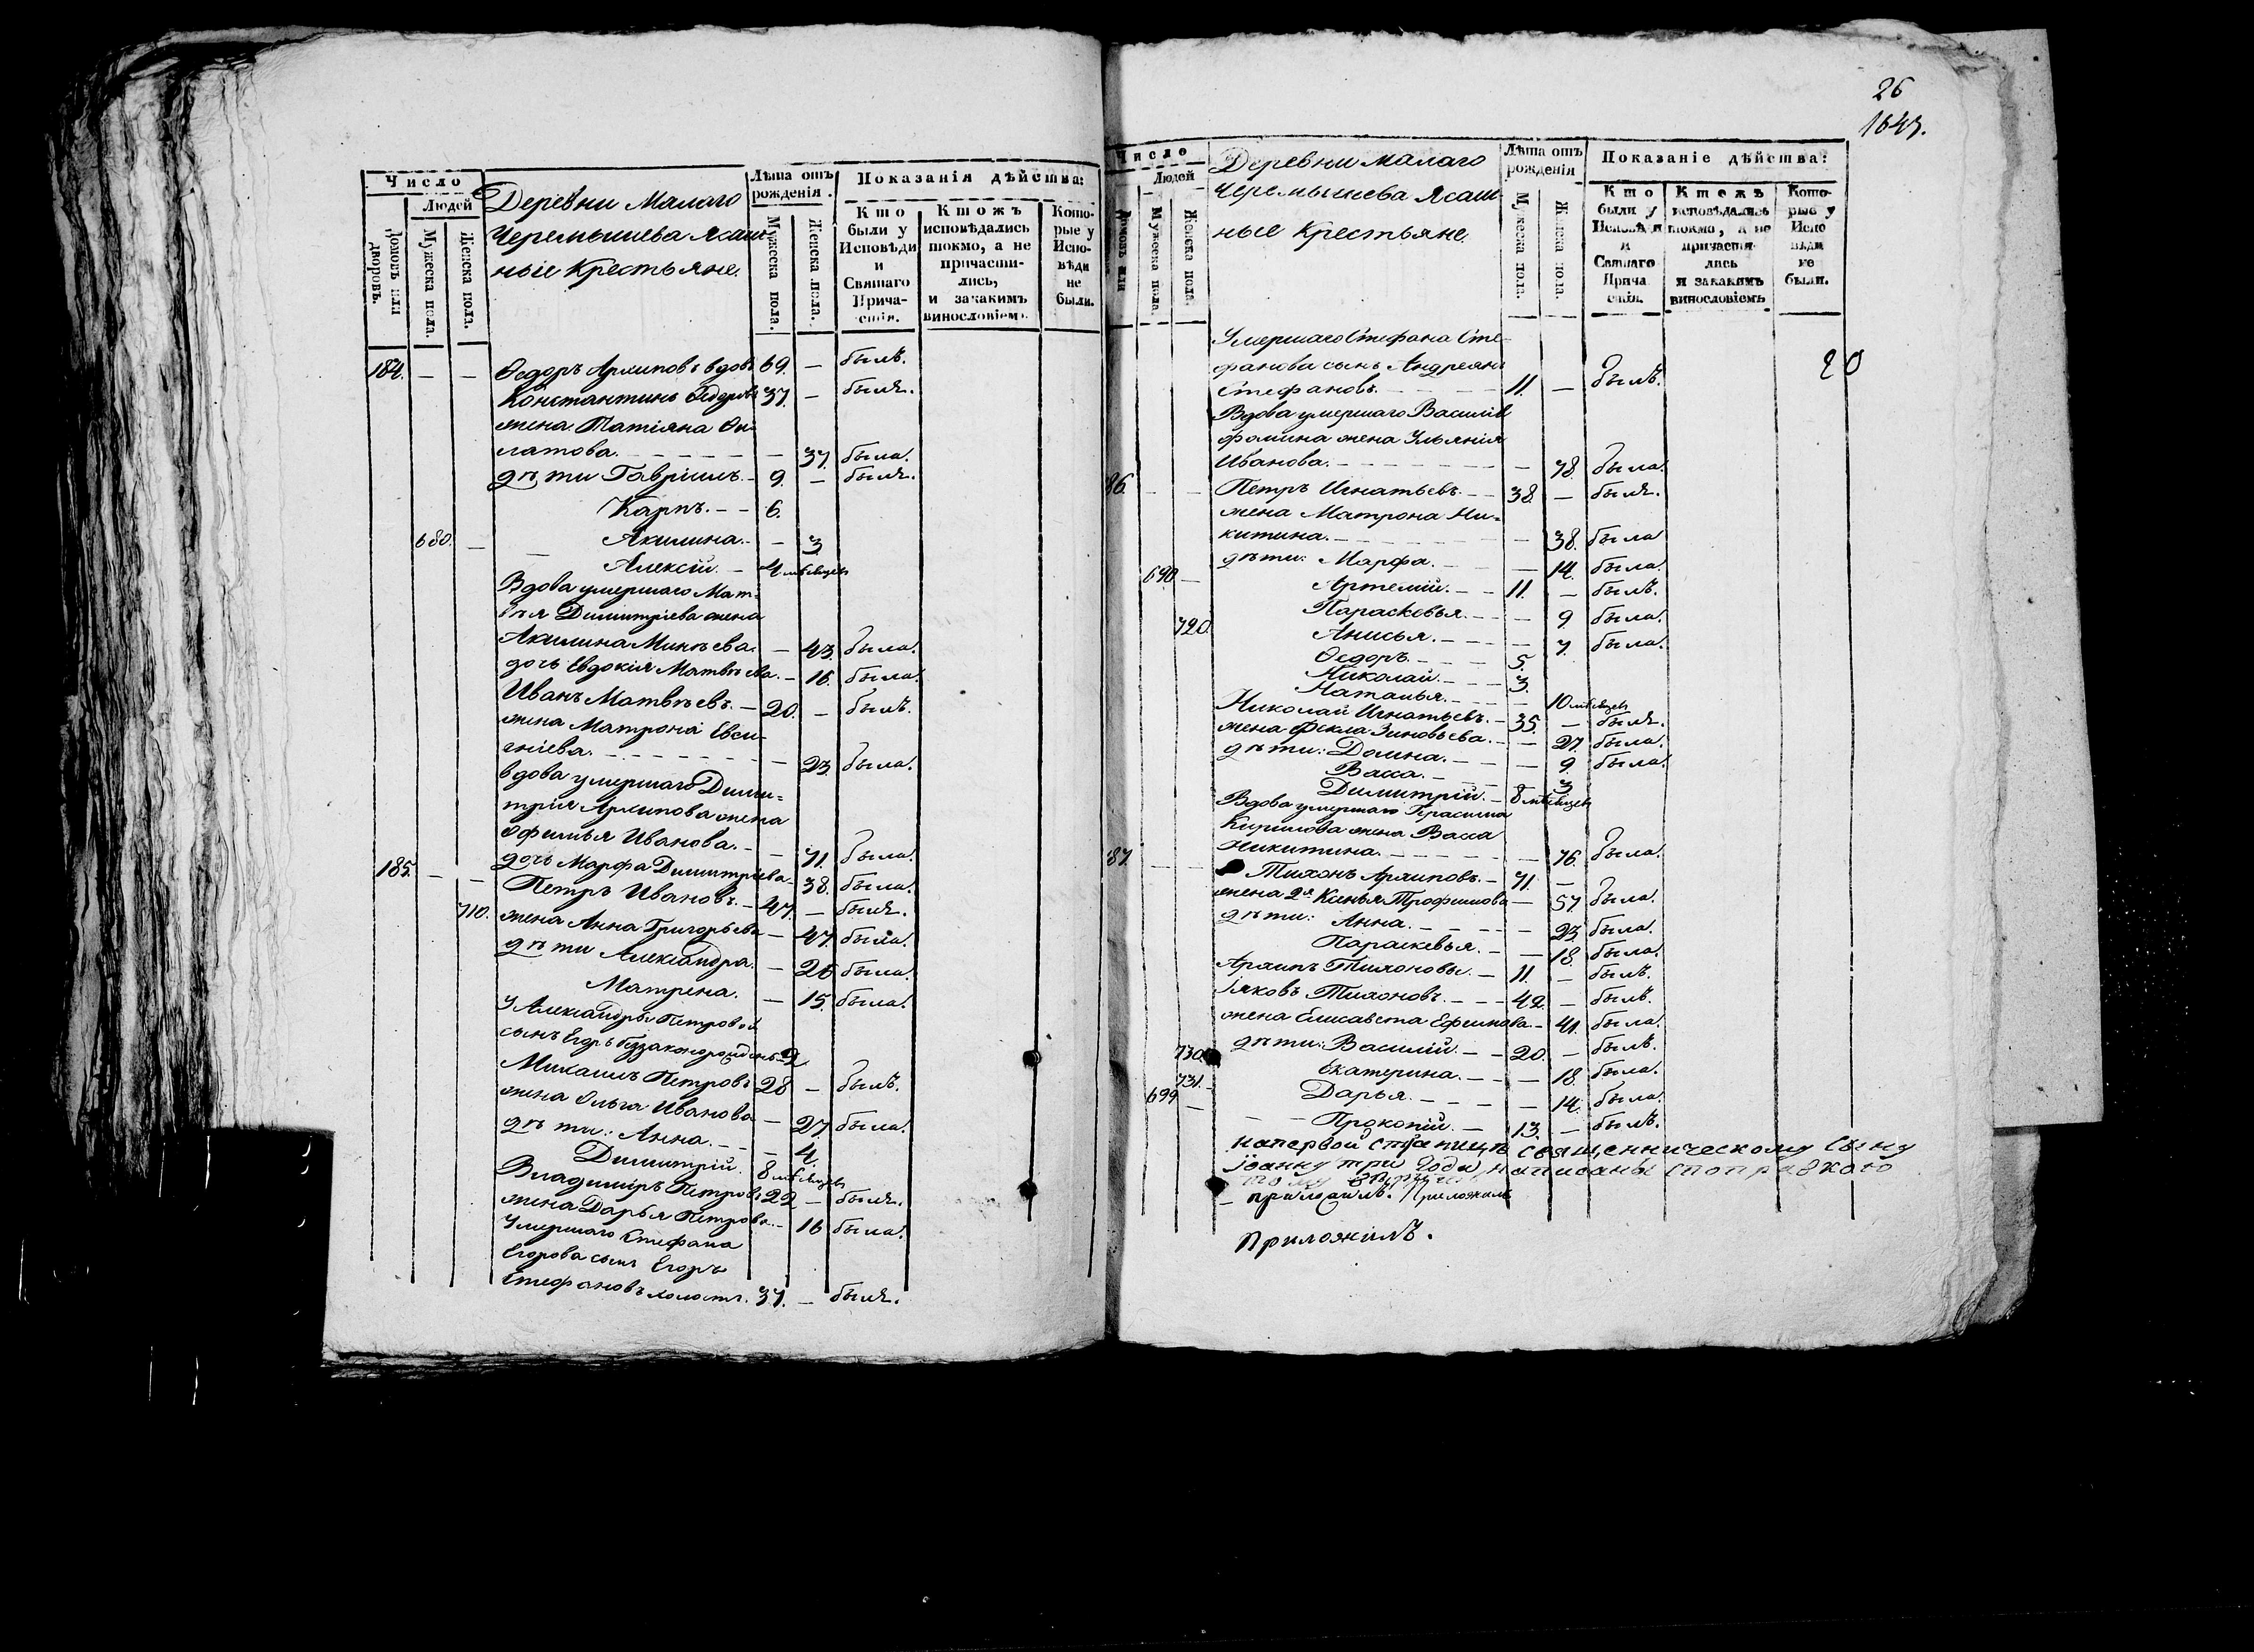 Число
Людей
Домовъ или дворовъ.
Мужеска пола.
Женска пола.
Деревни Малаго
Черемышева Ясаш-
ныіе Крестьяне.
Лѣта отъ рожденія.
Мужеска пола.
Женска пола.
Показанія дѣйства:
Кто были у Исповѣди и Святаго Прича-стія.
Ктожъ исповѣдались токмо, а не причасти-лись, и закакимъ винословіемъ.
Кото-рые у Испо-вѣди не были.
184. — — Ѳедоръ Архиповъ вдовъ 69. — былъ.
Константинъ Ѳедоровъ 37. — былъ.
жена Татіяна Фи-
латова. — 37. была.
дѣти Гавріилъ. 9. — былъ.
Карпъ. 6.
680. — Акилина. — 3
Алексій. 4 мѣсяцевъ
Вдова умершаго Мат-
вѣя Димитріева жена
Акилина Минѣева. — 43. была.
дочь Евдокія Матвѣева. — 16. была.
Иванъ Матвѣевъ. 20. — былъ.
жена Матрона Евси-
гніева. — 23. была.
вдова умершаго Дими-
трія Архипова жена
Офимья Иванова. — 71. была.
дочь Марфа Димитріева — 38. была.
185. — — Петръ Ивановъ. 47. — былъ.
710. жена Анна Григорьева — 47. была.
дѣти Александра. — 26 была.
Матрена. — 15. была.
У Александры Петровой
сынъ Егоръ беззаконорожденъ 2
Михаилъ Петровъ 28 — былъ.
жена Ольга Иванова — 27. была.
дѣти: Анна. — 4.
Димитрій. 8 мѣсяцевъ
Владиміръ Петровъ 22 — былъ.
жена Дарья Петрова. — 16 была.
Умершаго Стефана
Егорова сынъ Егоръ
Стефановъ холостъ. 37. — былъ.
26
1643.
Число
Людей
Домовъ или
Мужеска пола.
Женска пола.
Деревни Малаго
Черемышева Ясаш-
ные Крестьяне.
Лѣта отъ рожденія
Мужеска пола.
Женска пола.
Показаніе дѣйства:
Кто были у Исповѣди и Святаго Прича стія.
Ктожъ исповѣдались токмо, а не причасти-лись и закакимъ винословіемъ
Кото-рые у Испо вѣди не были.
Умершаго Стефана Сте-
фанова сынъ Андреянъ
Стефановъ. 11. — былъ.
20
Вдова умершаго Василія
Фомина жена Ульянія
Иванова. — 78. была.
86. — — Петръ Игнатьевъ. 38. — былъ.
жена Матрона Ни-
китина. — 38. была
дѣти: Марфа. — 14. была.
690 — Артемій. 11. — былъ.
Параскевья. — 9 была.
720. Анисья. — 7. была.
Ѳедоръ. 5.
Николай. 3.
Наталья. — 10 мѣсяцевъ
Николай Игнатьевъ. 35. — былъ.
жена Фекла Зиновьева. — 27. была.
дѣти: Домна. — 9. была.
Васса. — 3
Димитрій. 8 мѣсяцевъ
Вдова умершаго Герасима
Кирилова жена Васса
Никитина. — 76. была.
87. — — Тихонъ Архиповъ. 71. —
жена 2я Ксенья Трофимова — 57. была.
дѣти: Анна. — 23. была.
Параскевья. — 18. была.
Архипъ Тихоновы. 11 — былъ.
Іяковъ Тихоновъ. 42. — былъ.
жена Елисавета Ефимова. — 41. была.
730. дѣти: Василій. 20. — былъ.
731. Екатерина. — 18. была.
699 — Дарья. — 14. была.
Прокопій. 13. — былъ.
напервой страницѣ священническому сыну
Іоанну три года написаны споправкою
приложилъ. Приложилъ
Приложилъ.